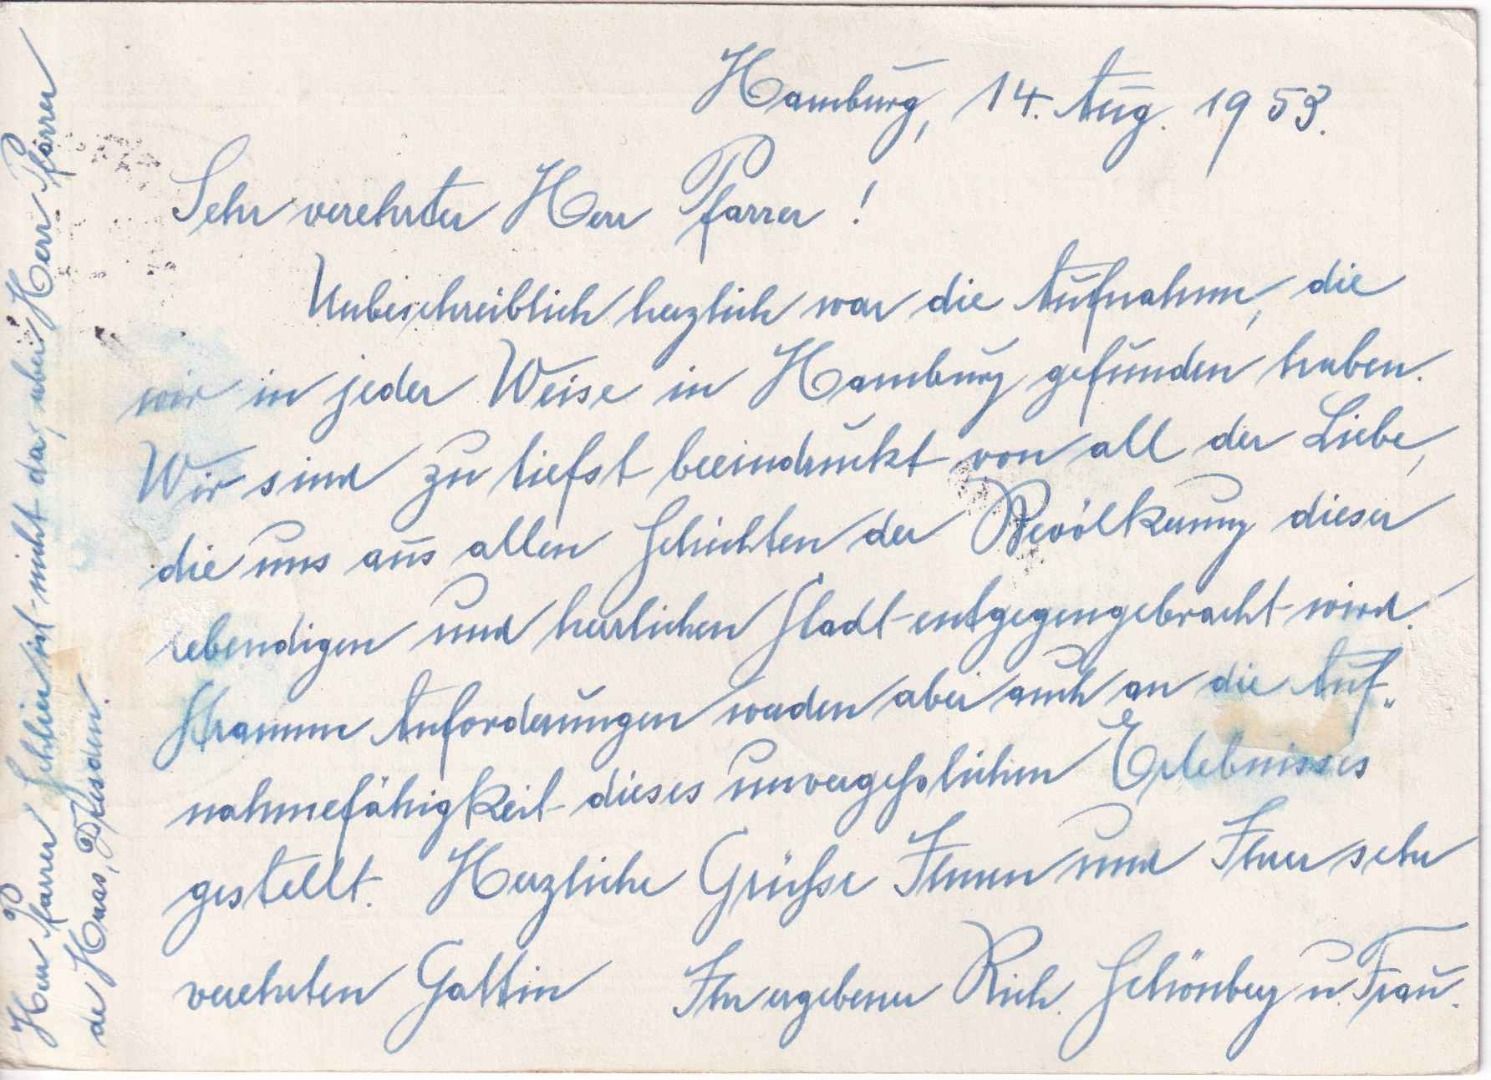 Hamburg, 14. Aug. 1953.
Sehr verehrter Herr Pfarrer!
Unbeschreiblich herzlich war die Aufnahme, die
wir in jeder Weise in Hamburg gefunden haben.
Wir sind zu tiefst beeindruckt von all der Liebe,
die uns aus allen Schichten der Bevölkerung dieser
lebendigen und herrlichen Stadt entgegengebracht wird.
Stramme Anforderungen werden aber auch an die Auf„
nahmefähigkeit dieses unvergeßlichen Erlebnisses
gestellt. Herzliche Grüße Ihnen und Ihrer sehr
verehrten Gattin Ihr ergebener Rich. Schönberg u. Frau.
Herr Pfarrer ist nicht da, aber Herr Pfarrer
de Haas, Dresden.